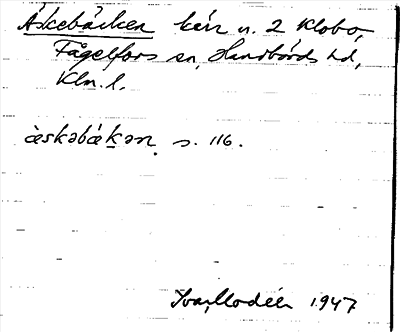 Åskebäcken kärr n. 2 Klobo,
Fagelfors sn, Handbörds hd,
Kln. l.
àskəbákən s. 116.
Ivar Modéer 1947